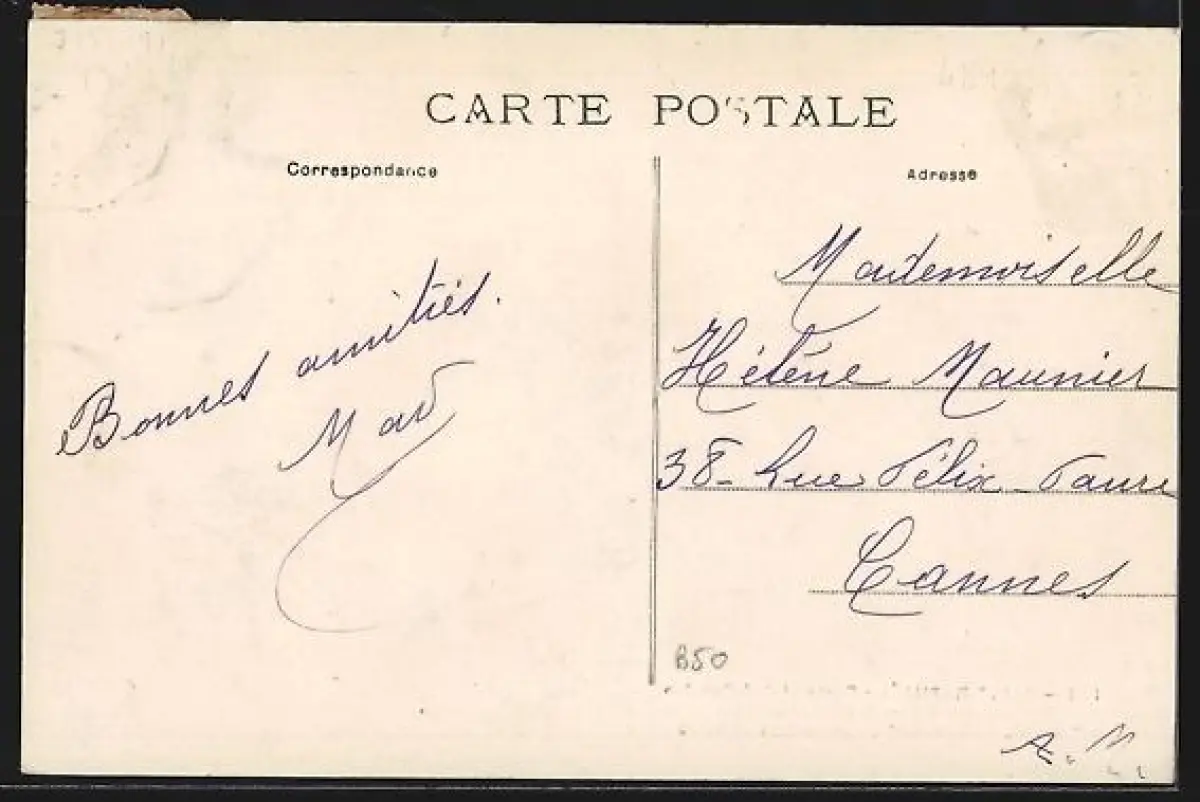 CARTE POSTALE
Correspondance
Adresse
Bonnes amitiés.
Mad
Mademoiselle
Hélène Maunier
38- Rue Félix-Faure
Cannes
B50
A.M.